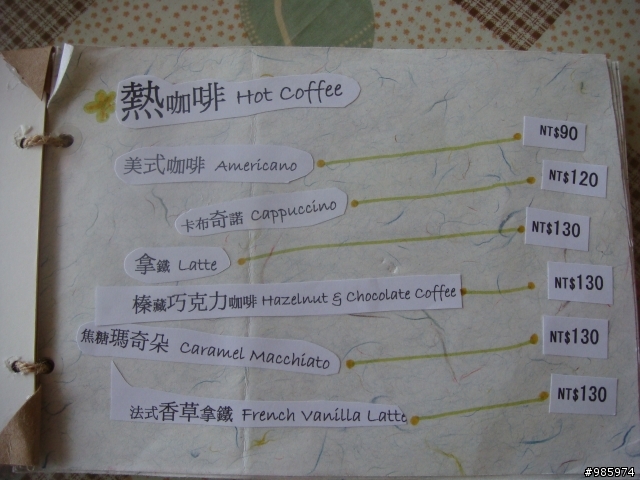 熱咖啡 Hot Coffee
美式咖啡 Americano NT$90
卡布奇諾 Cappuccino NT$120
拿鐵 Latte NT$130
榛藏巧克力咖啡 Hazelnut & Chocolate Coffee NT$130
焦糖瑪奇朵 Caramel Macchiato NT$130
法式香草拿鐵 French Vanilla Latte NT$130
#985974